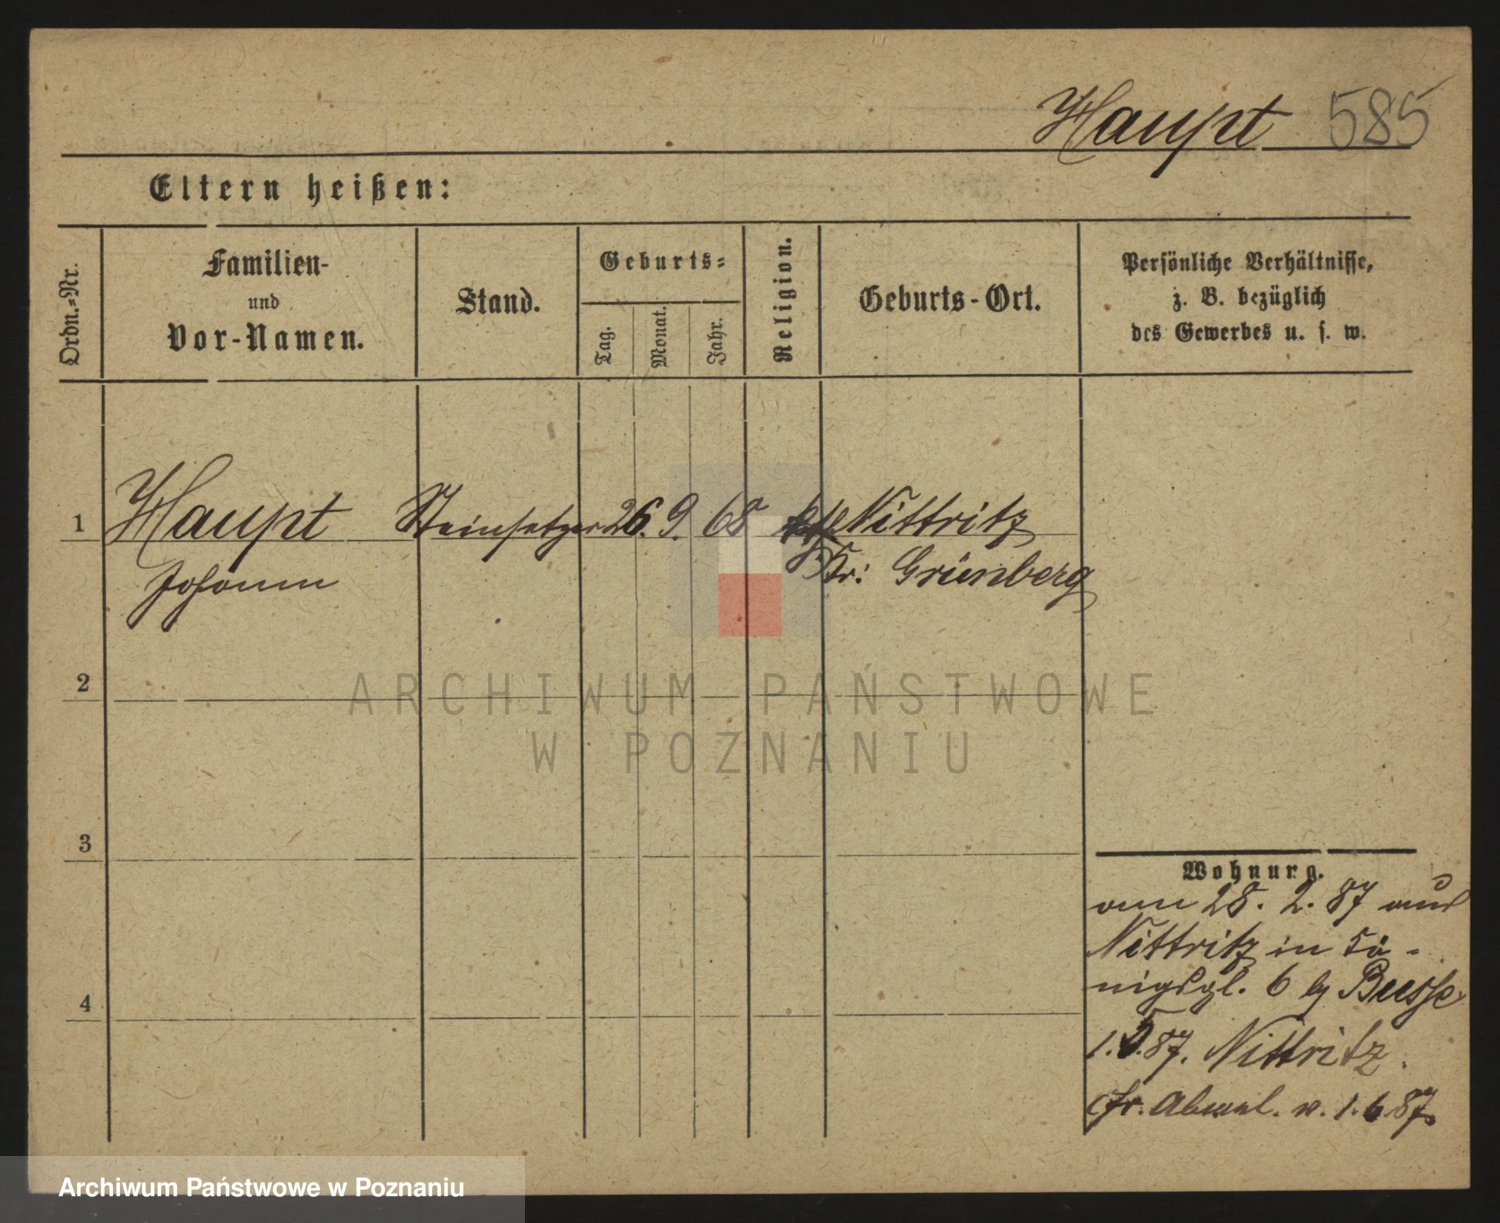 Haupt 585
Eltern heißen:
Ordn.-Nr.
Familien-
und
Vor-Namen.
Stand.
Geburts-
Tag.
Monat.
Jahr.
Religion.
Geburts-Ort.
Persönliche Verhältnisse,
z. B. bezüglich
des Gewerbes u. s. w.
1 Haupt Steinsetzer 26. 9. 68 Nittritz
Johann Kr: Grünberg
2
ARCHIWUM PAŃSTWOWE
W POZNANIU
3
Wohnung.
am 28. 2. 87 aus
Nittritz in Kö-
nigspl. 6 bei Busse
4
1.5.87. Nittritz.
fr. Abmel. v. 1.6.87.
Archiwum Państwowe w Poznaniu